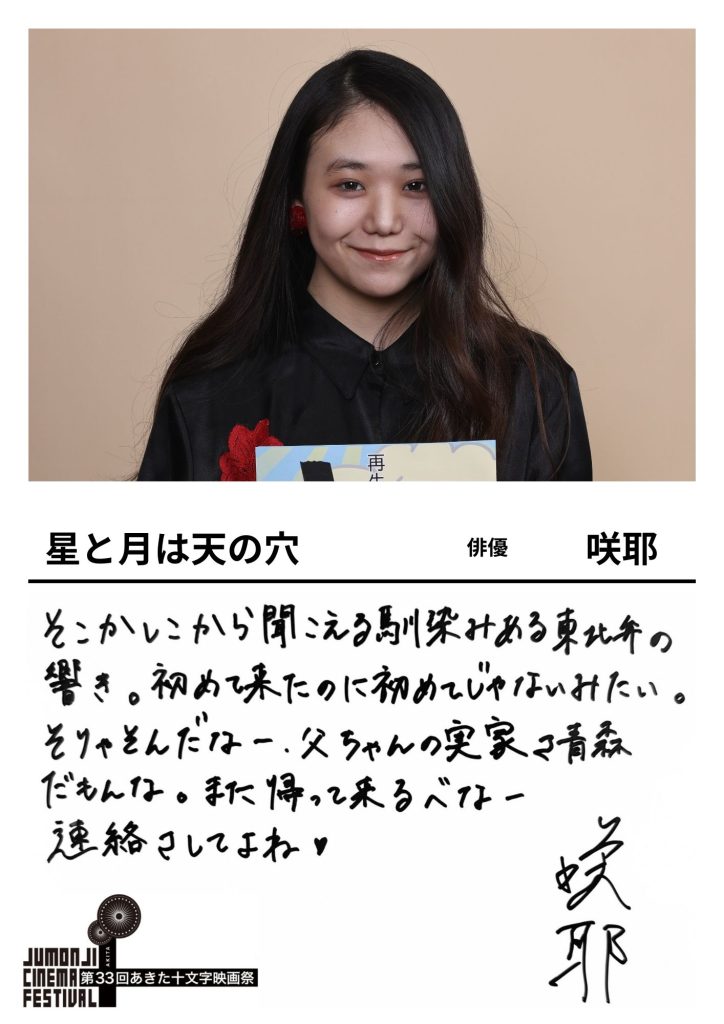 再生
星と月は天の穴 俳優 咲耶
そこかしこから聞こえる馴染みある東北弁の
響き。初めて来たのに初めてじゃないみたい。
そりゃそんだなー、父ちゃんの実家さ青森
だもんな。また帰って来るべなー
連絡さしてよね♥
咲耶
JUMONJI
CINEMA
FESTIVAL
AKITA
第33回あきた十文字映画祭